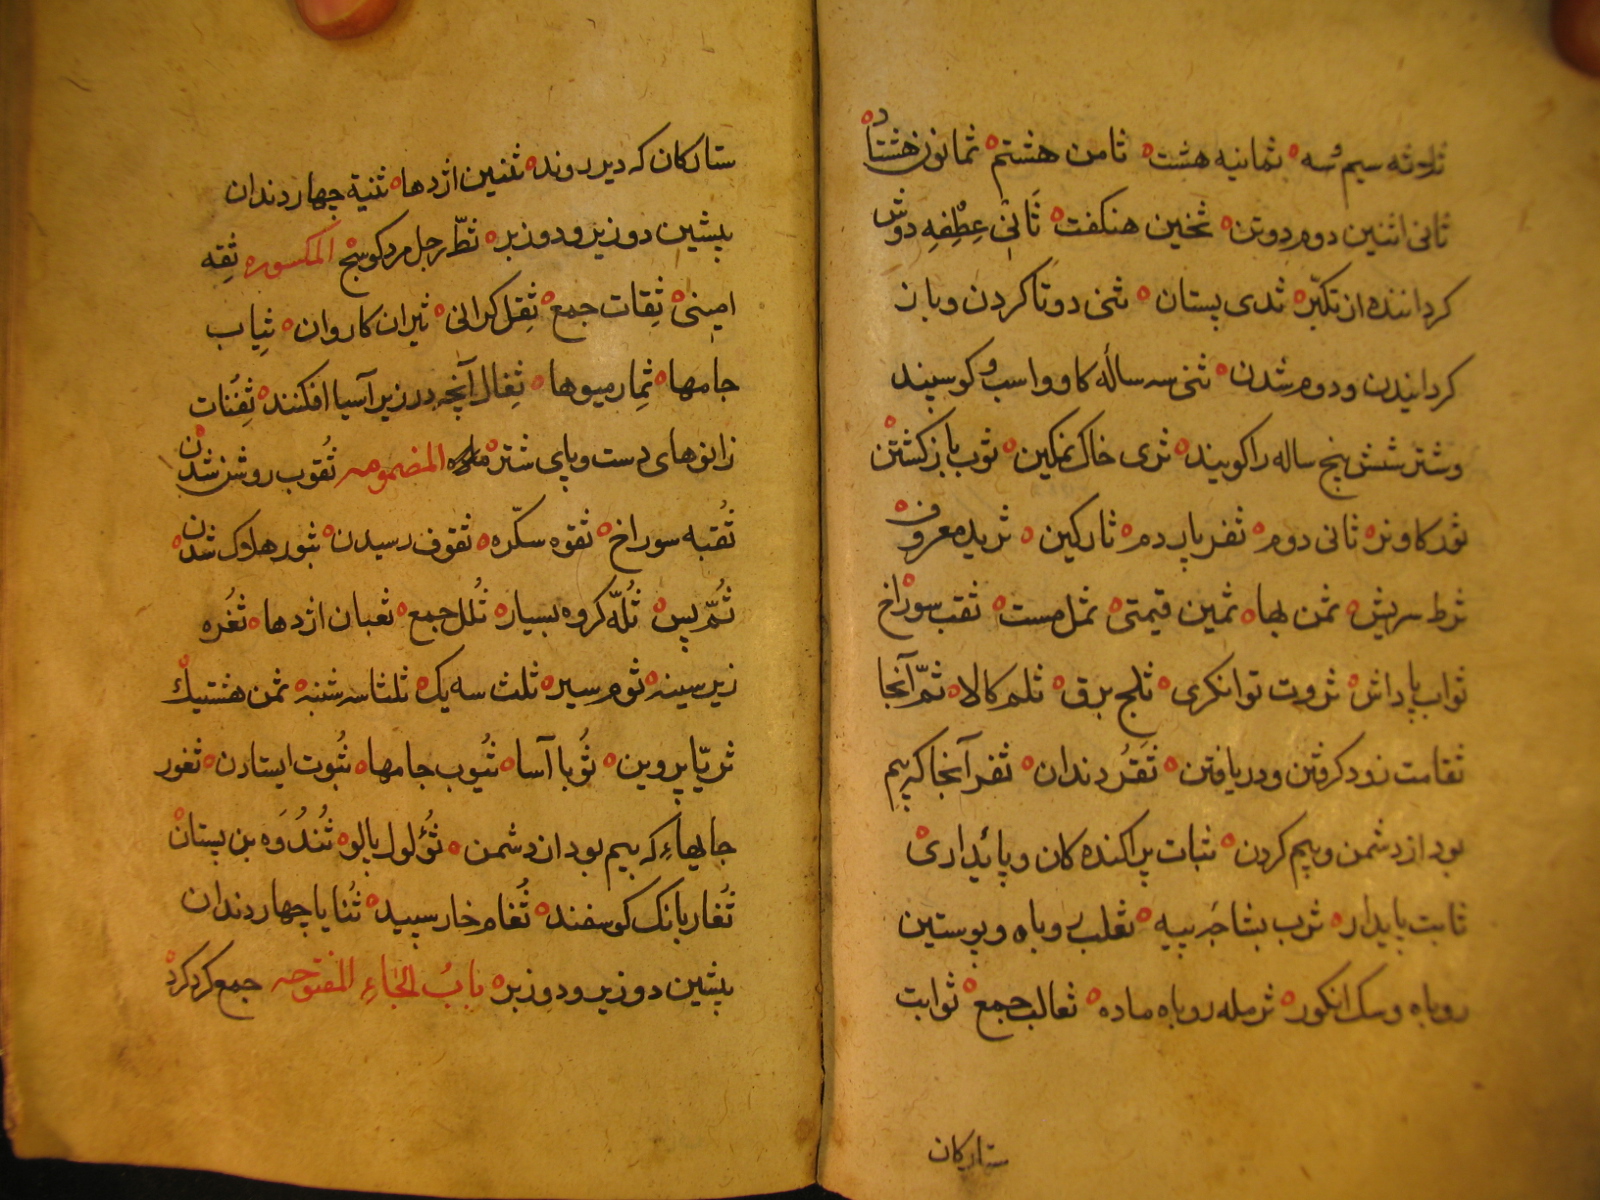 ثلاثه سیم سه ثمانیه هشت ثامن هشتم ثمانون هشتاد
ثانی اثنین دوم دوتن ثخین هنکفت ثَانیَ عِطْفِهِ دوش
کرداننده از تکبّر ثدی پستان ثنی دوتا کردن و باز
کردانیدن و دوم شدن ثنی سه ساله کاو و اسب و کوسپند
و شتر شش پنج ساله را کویند ثری خاک نمکین ثوب باز کشتن
ثور کاو نر ثانی دوم ثفر پاردم ثارکین ثرید معروف
ثرط سریش ثمن بها ثمین قیمتی ثمل مست ثقب سوراخ
ثواب پاداش ثروت توانکری ثلج برق ثلم کالا ثمّ آنجا
ثقامت زود کرفتن و دریافتن ثَقَرُ دندان ثفر آنجا که بیم
بود از دشمن و بیم کردن ثبات پراکنده کان و پائداری
ثابت پایدار ثرب بشاجَربیه ثعلب روباه و پوستین
روباه و سک انکور ثرمله روباه ماده ثعالب جمع ثوابت
ستارکان
ستارکان که دیر روند ثنین اژدها ثنیة چهار دندان
پیشین دو زیر و دو زبر ثطّ رجل مرد کوسج المکسوره ثِقِه
امینی ثِقات جمع ثِقِل کرانی ثیران کاروان ثِیاب
جامها ثِمار میوها ثِفال آنچه در زیر آسیا افکنند ثِفِنات
زانوهای دست و پای شتر المضمومه ثُقوب روشن شدن
ثُقبه سوراخ ثقوه سکّره ثقوف رسیدن ثبور هلاک شدن
ثُمّ پس ثُلّه کروه بسیار ثُلل جمع ثعبان اژدها ثُغره
زیر سینه ثوم سیر ثلث سه یک ثلثا سه شنبه ثمن هشتیک
ثریّا پروین ثُوبا آسا ثُیوب جامها ثُبوت ایستادن ثغور
جایهاءِ که بیم بود از دشمن ثُؤلول بالو ثُندُوَه بن پستان
ثُغار بانک کوسفند ثُغام خار سپید ثُنایا چهار دندان
پیشین دو زیر و دو زبر بابُ الجاءِ المفتوحه جمع کرد کرد